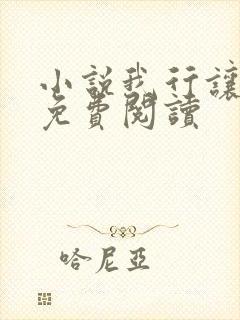 小説我行讓
免費閱讀
哈尼亞